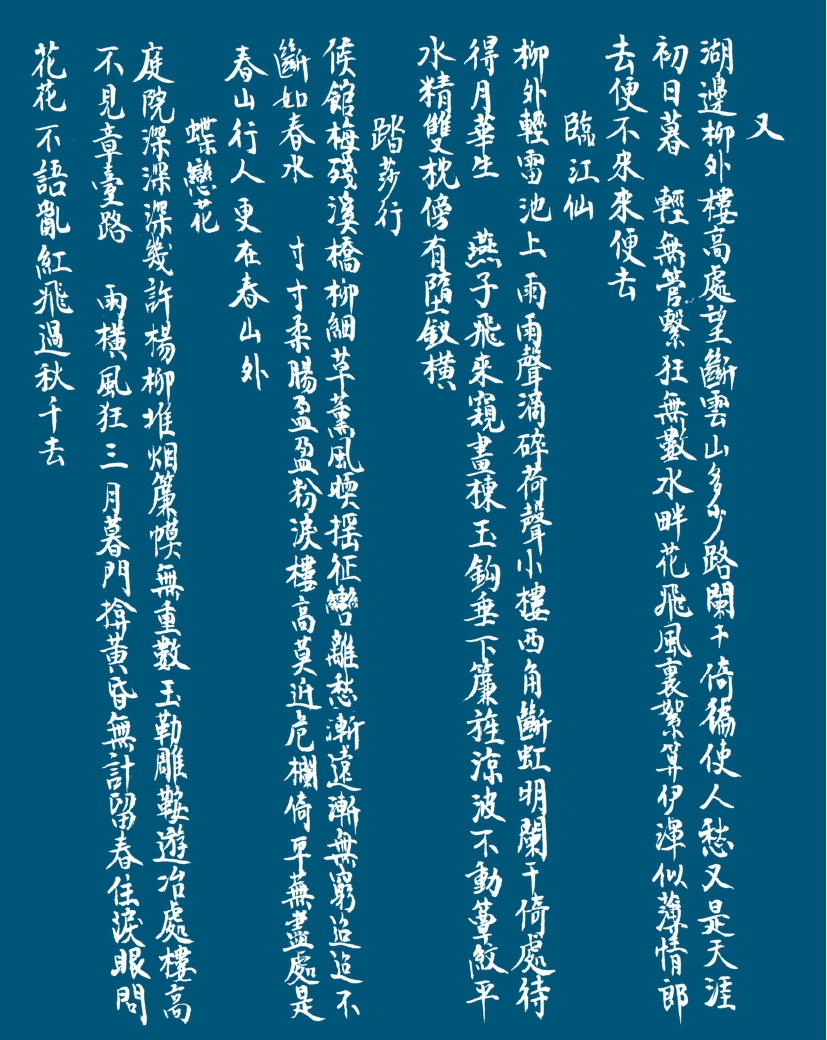 又
湖邊柳外樓高處望斷雲山多少路闌干倚徧使人愁又是天涯
初日暮　輕無管繫狂無數水畔花飛風裏絮算伊渾似薄情郎
去便不來來便去
臨江仙
柳外輕雷池上雨雨聲滴碎荷聲小樓西角斷虹明闌干倚處待
得月華生　燕子飛來窺畫棟玉鈎垂下簾旌涼波不動簟紋平
水精雙枕傍有墮釵橫
踏莎行
候館梅殘溪橋柳細草薰風暖搖征轡離愁漸遠漸無窮迢迢不
斷如春水　寸寸柔腸盈盈粉淚樓高莫近危欄倚平蕪盡處是
春山行人更在春山外
蝶戀花
庭院深深深幾許楊柳堆烟簾幙無重數玉勒雕鞍遊冶處樓高
不見章臺路　雨橫風狂三月暮門揜黃昏無計留春住淚眼問
花花不語亂紅飛過秋千去